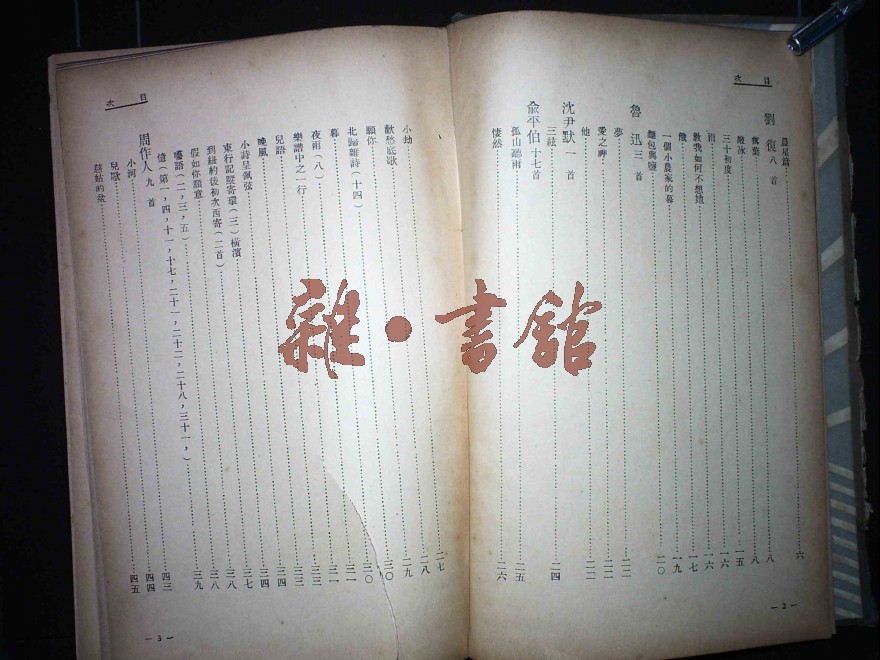 目次
晨星篇……六
劉復八首
葉……八
敲冰……八
三十初度……一五
雨……一六
教我如何不想她……一六
餓……一七
一個小農家的暮……一九
麵包與鹽……二〇
魯迅三首
夢……二二
愛之神……二二
他……二二
沈尹默一首
三絃……二四
俞平伯十七首
孤山聽雨……二五
悽然……二六
—2—
目次
小劫……二七
歡愁底歌……二八
願你……二九
北歸雜詩(十四)……三〇
暮……三〇
夜雨(八)……三一
樂譜中之一行……三一
兒語……三三
晚風……三三
小詩呈佩弦……三四
東行記蹤寄環(三)橫濱……三四
到紐約後初次西寄(二首)……三七
假如你願意……三八
囈語(二,三,五)……三八
憶(第一,四,十一,十七,二十一,二十二,二十八,三十一,)……三九
周作人九首
小河……四三
兒歌……四四
慈姑的盆……四五
—3—
雜·書館